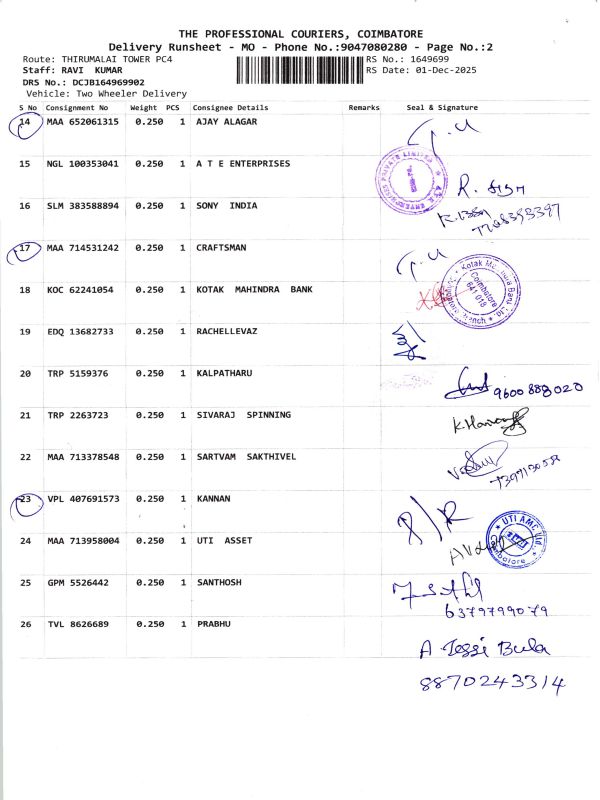 THE PROFESSIONAL COURIERS, COIMBATORE
Delivery Runsheet - MO - Phone No.:9047080280 - Page No.:2
Route: THIRUMALAI TOWER PC4 RS No.: 1649699
Staff: RAVI KUMAR RS Date: 01-Dec-2025
DRS No.: DCJB164969902
Vehicle: Two Wheeler Delivery
S No Consignment No Weight PCS Consignee Details Remarks Seal & Signature
14 MAA 652061315 0.250 1 AJAY ALAGAR
15 NGL 100353041 0.250 1 A T E ENTERPRISES
R.
16 SLM 383588894 0.250 1 SONY INDIA
7708393397
17 MAA 714531242 0.250 1 CRAFTSMAN
18 KOC 62241054 0.250 1 KOTAK MAHINDRA BANK
Coimbatore
641 018
19 EDQ 13682733 0.250 1 RACHELLEVAZ
20 TRP 5159376 0.250 1 KALPATHARU
9600888020
21 TRP 2263723 0.250 1 SIVARAJ SPINNING
22 MAA 713378548 0.250 1 SARTVAM SAKTHIVEL
23 VPL 407691573 0.250 1 KANNAN
UTI AMC Ltd.
24 MAA 713958004 0.250 1 UTI ASSET
25 GPM 5526442 0.250 1 SANTHOSH
6379799079
26 TVL 8626689 0.250 1 PRABHU
A Jessi Bula
8870243314